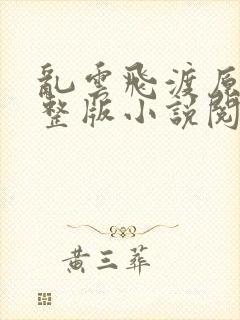 亂雲飛渡原
整版小說閱
黃三葬